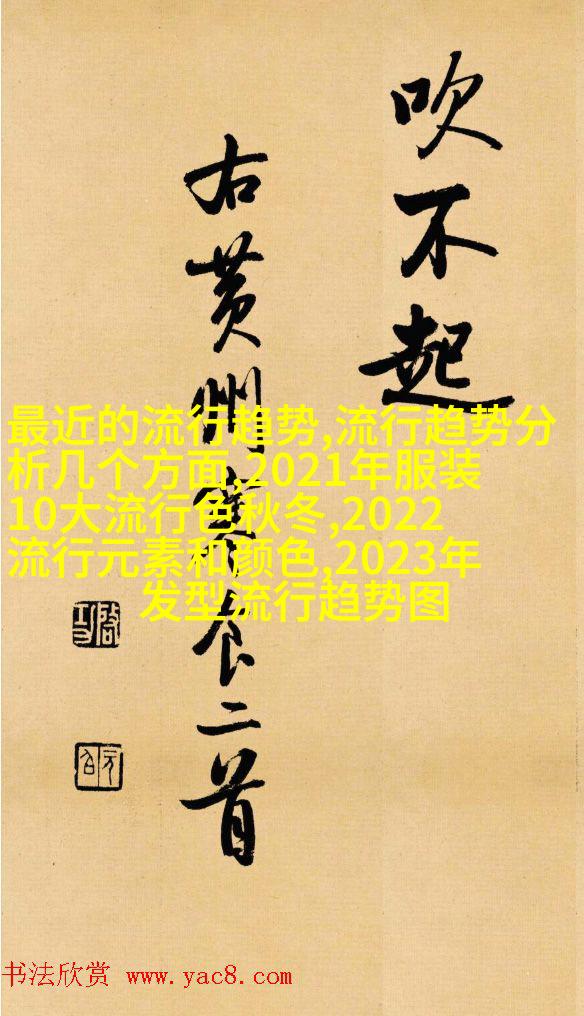 吹不起
右黄州寒食二首
最近的流行趋势,流行趋势分
析几个方面,2021年服装
10大流行色秋冬,2022
流行元素和颜色,2023年
发型流行趋势图
书法欣赏 www.yac8.com